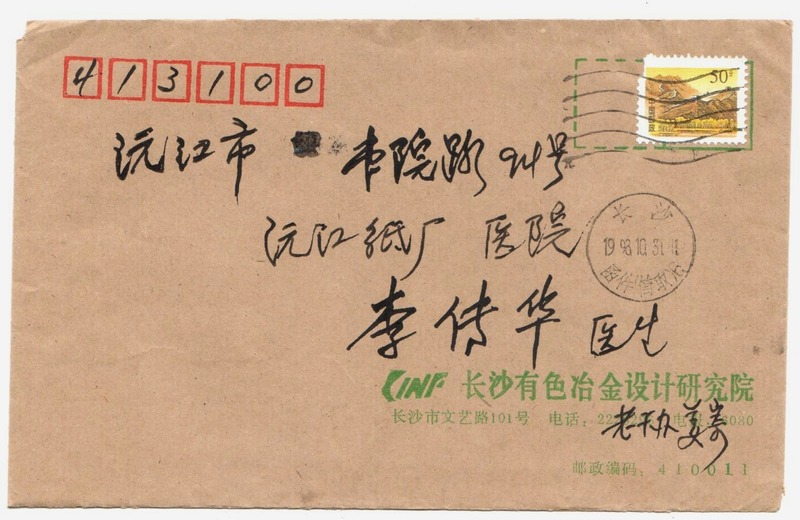 413100
50分
沅江市 书院路94号
沅江纸厂 医院
长沙
1998.10.31.11
李传华 医生
CINF 长沙有色冶金设计研究院
长沙市文艺路101号 电话: 22 电报: 6080
老干办 姜寄
邮政编码: 410011